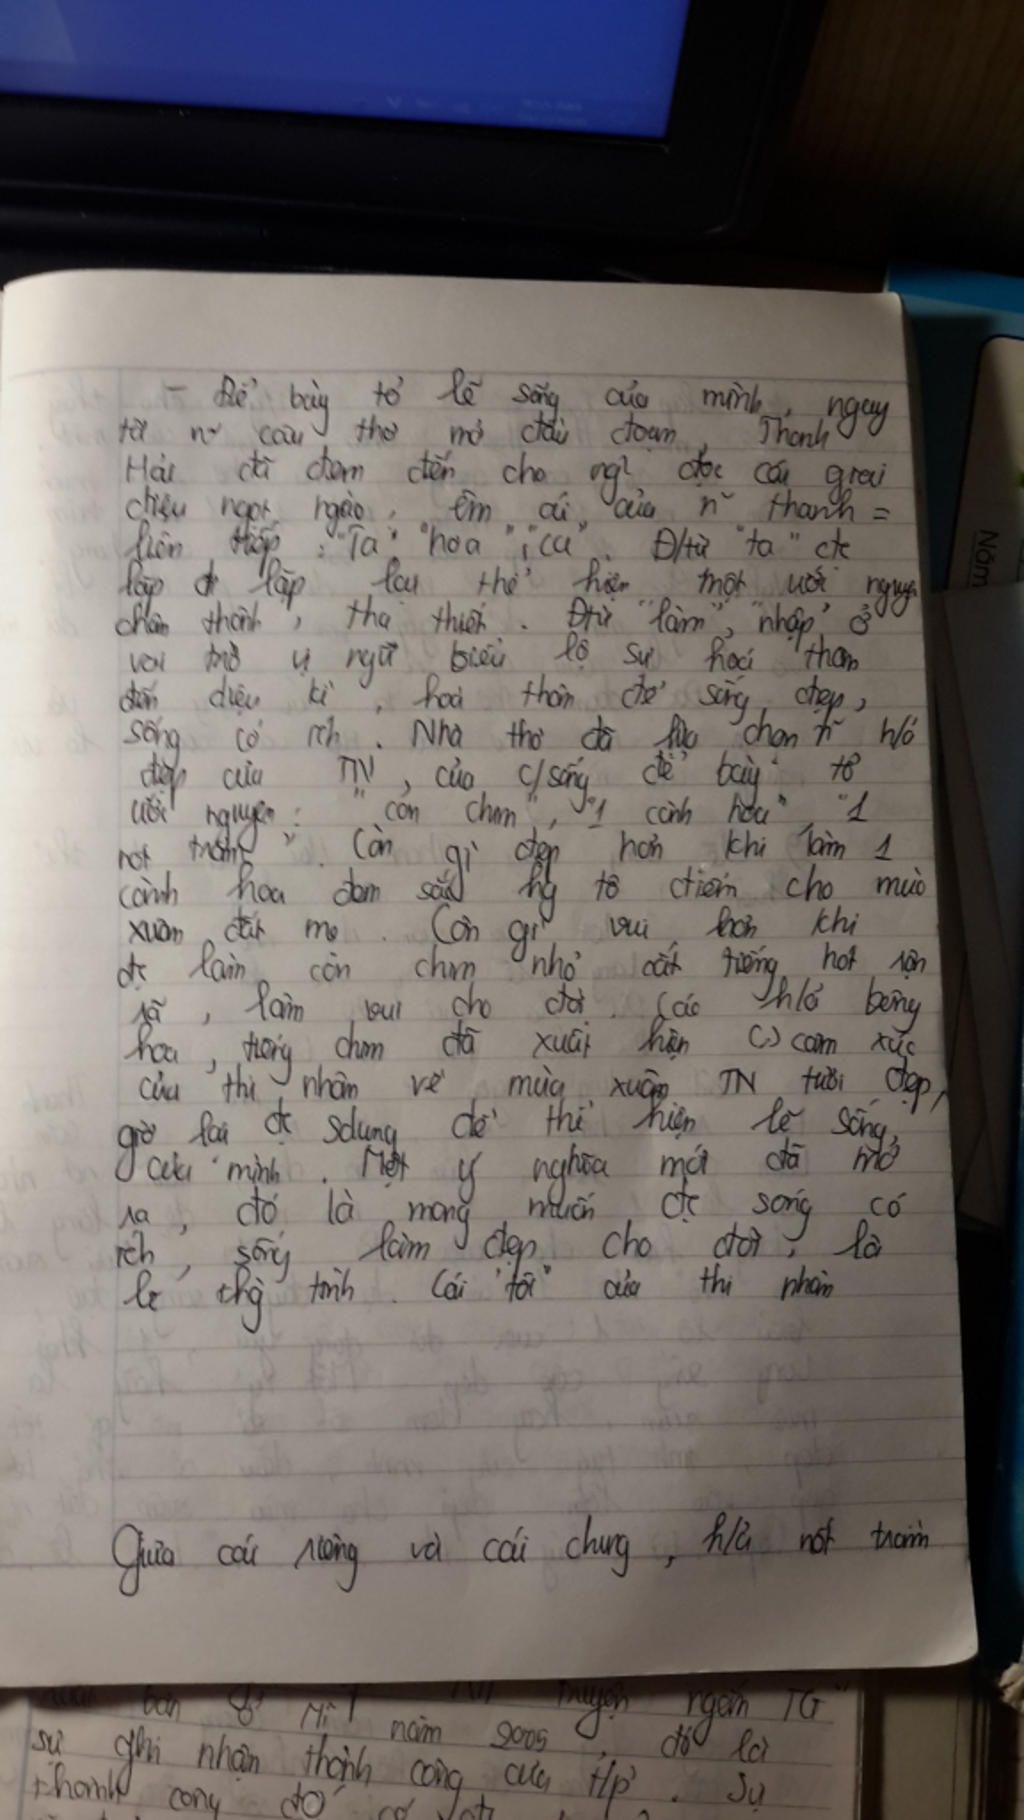 - Để bày tỏ lẽ sống của mình, ngay
từ n~ câu thơ mở đầu đoạn, Thanh
Hải đã đem đến cho ng² đọc cái giai
điệu ngọt ngào, êm ái của n~ thanh =
liên tiếp : "Ta" "hoa" "ca". Đ/từ "ta" đc
lặp đi lặp lại thể hiện một ước nguyện
chân thành, tha thiết. Đtừ "làm", "nhập" ở
vai trò vị ngữ biểu lộ sự hoá thân
đến diệu kì, hoá thân để sống đẹp,
sống có ích. Nhà thơ đã lựa chọn n~ h/ả
đẹp của TN, của c/sống để bày tỏ
ước nguyện : "con chim", "1 cành hoa", "1
nốt trầm". Còn gì đẹp hơn khi làm 1
cành hoa đem sắc hg tô điểm cho mùa
xuân đất mẹ. Còn gì vui hơn khi
đc làm con chim nhỏ cất tiếng hót rộn
rã, làm vui cho đời. Các h/ả bông
hoa, tiếng chim đã xuất hiện (.) cảm xúc
của thi nhân về mùa xuân TN tươi đẹp,
giờ lại đc sdụng để thể hiện lẽ sống
của mình. Một ý nghĩa mới đã mở
ra, đó là mong muốn đc sống có
ích, sống làm đẹp cho đời, là
lẽ thg tình. Cái "tôi" của thi nhân
Giữa cái riêng và cái chung, h/ả nốt trầm
bản truyện ngắn TG"
Mĩ năm 2005, đó là
sự ghi nhận thành công của t/p. Sự
thành công đó có
Nôm